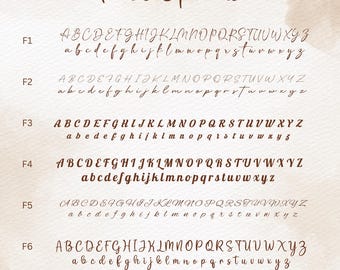 F1 ABCDEFGHIJKLMNOPQRSTUVWXYZ
abcdefghijklmnopqrstuvwxyz
F2 ABCDEFGHIJKLMNOPQRSTUVWXYZ
abcdefghijklmnopqrstuvwxyz
F3 ABCDEFGHIJKLMNOPQRSTUVWXYZ
abcdefghijklmnopqrstuvwxyz
F4 ABCDEFGHIJKLMNOPQRSTUVWXYZ
abcdefghijklmnopqrstuvwxyz
F5 ABCDEFGHIJKLMNOPQRSTUVWXYZ
abcdefghijklmnopqrstuvwxyz
F6 ABCDEFGHIJKLMNOPQRSTUVWXYZ
abcdefghijklmnopqrstuvwxyz